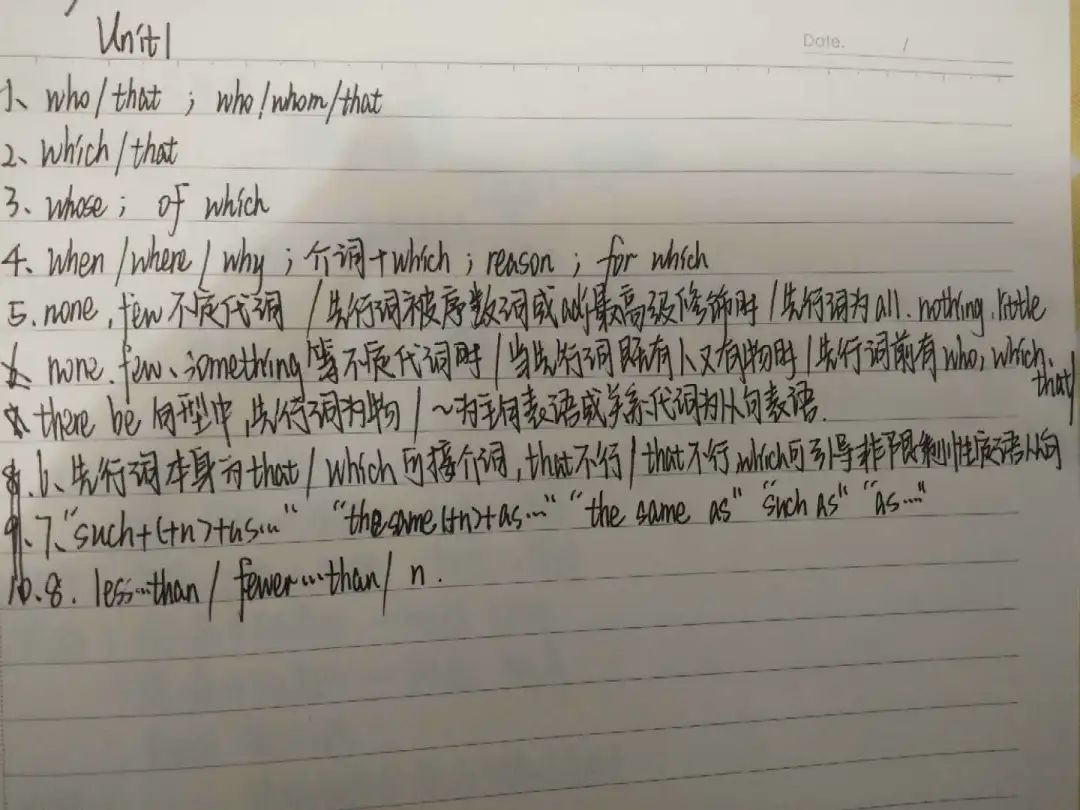 Unit1
Date. /
1、who/that ; who/whom/that
2、which/that
3、whose; of which
4、when/where/why ; 介词+which ; reason ; for which
5.none, few不定代词 / 先行词被序数词或adj最高级修饰时 / 先行词为all. nothing. little
none. few、something等不定代词时 / 当先行词既有人又有物时 / 先行词前有who, which、that
there be 句型中,先行词为物 / ~为主句表语或关系代词为从句表语.
8.6、先行词本身为that / which可接介词,that不行 / that不行,which可引导非限制性定语从句
9.7、"such+(+n)+as…" "the same(+n)+as…" "the same as" "such as" "as…"
10.8. less…than / fewer…than / n.